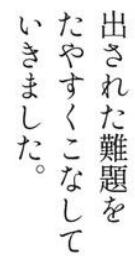 出された難題を
たやすくこなして
いきました。